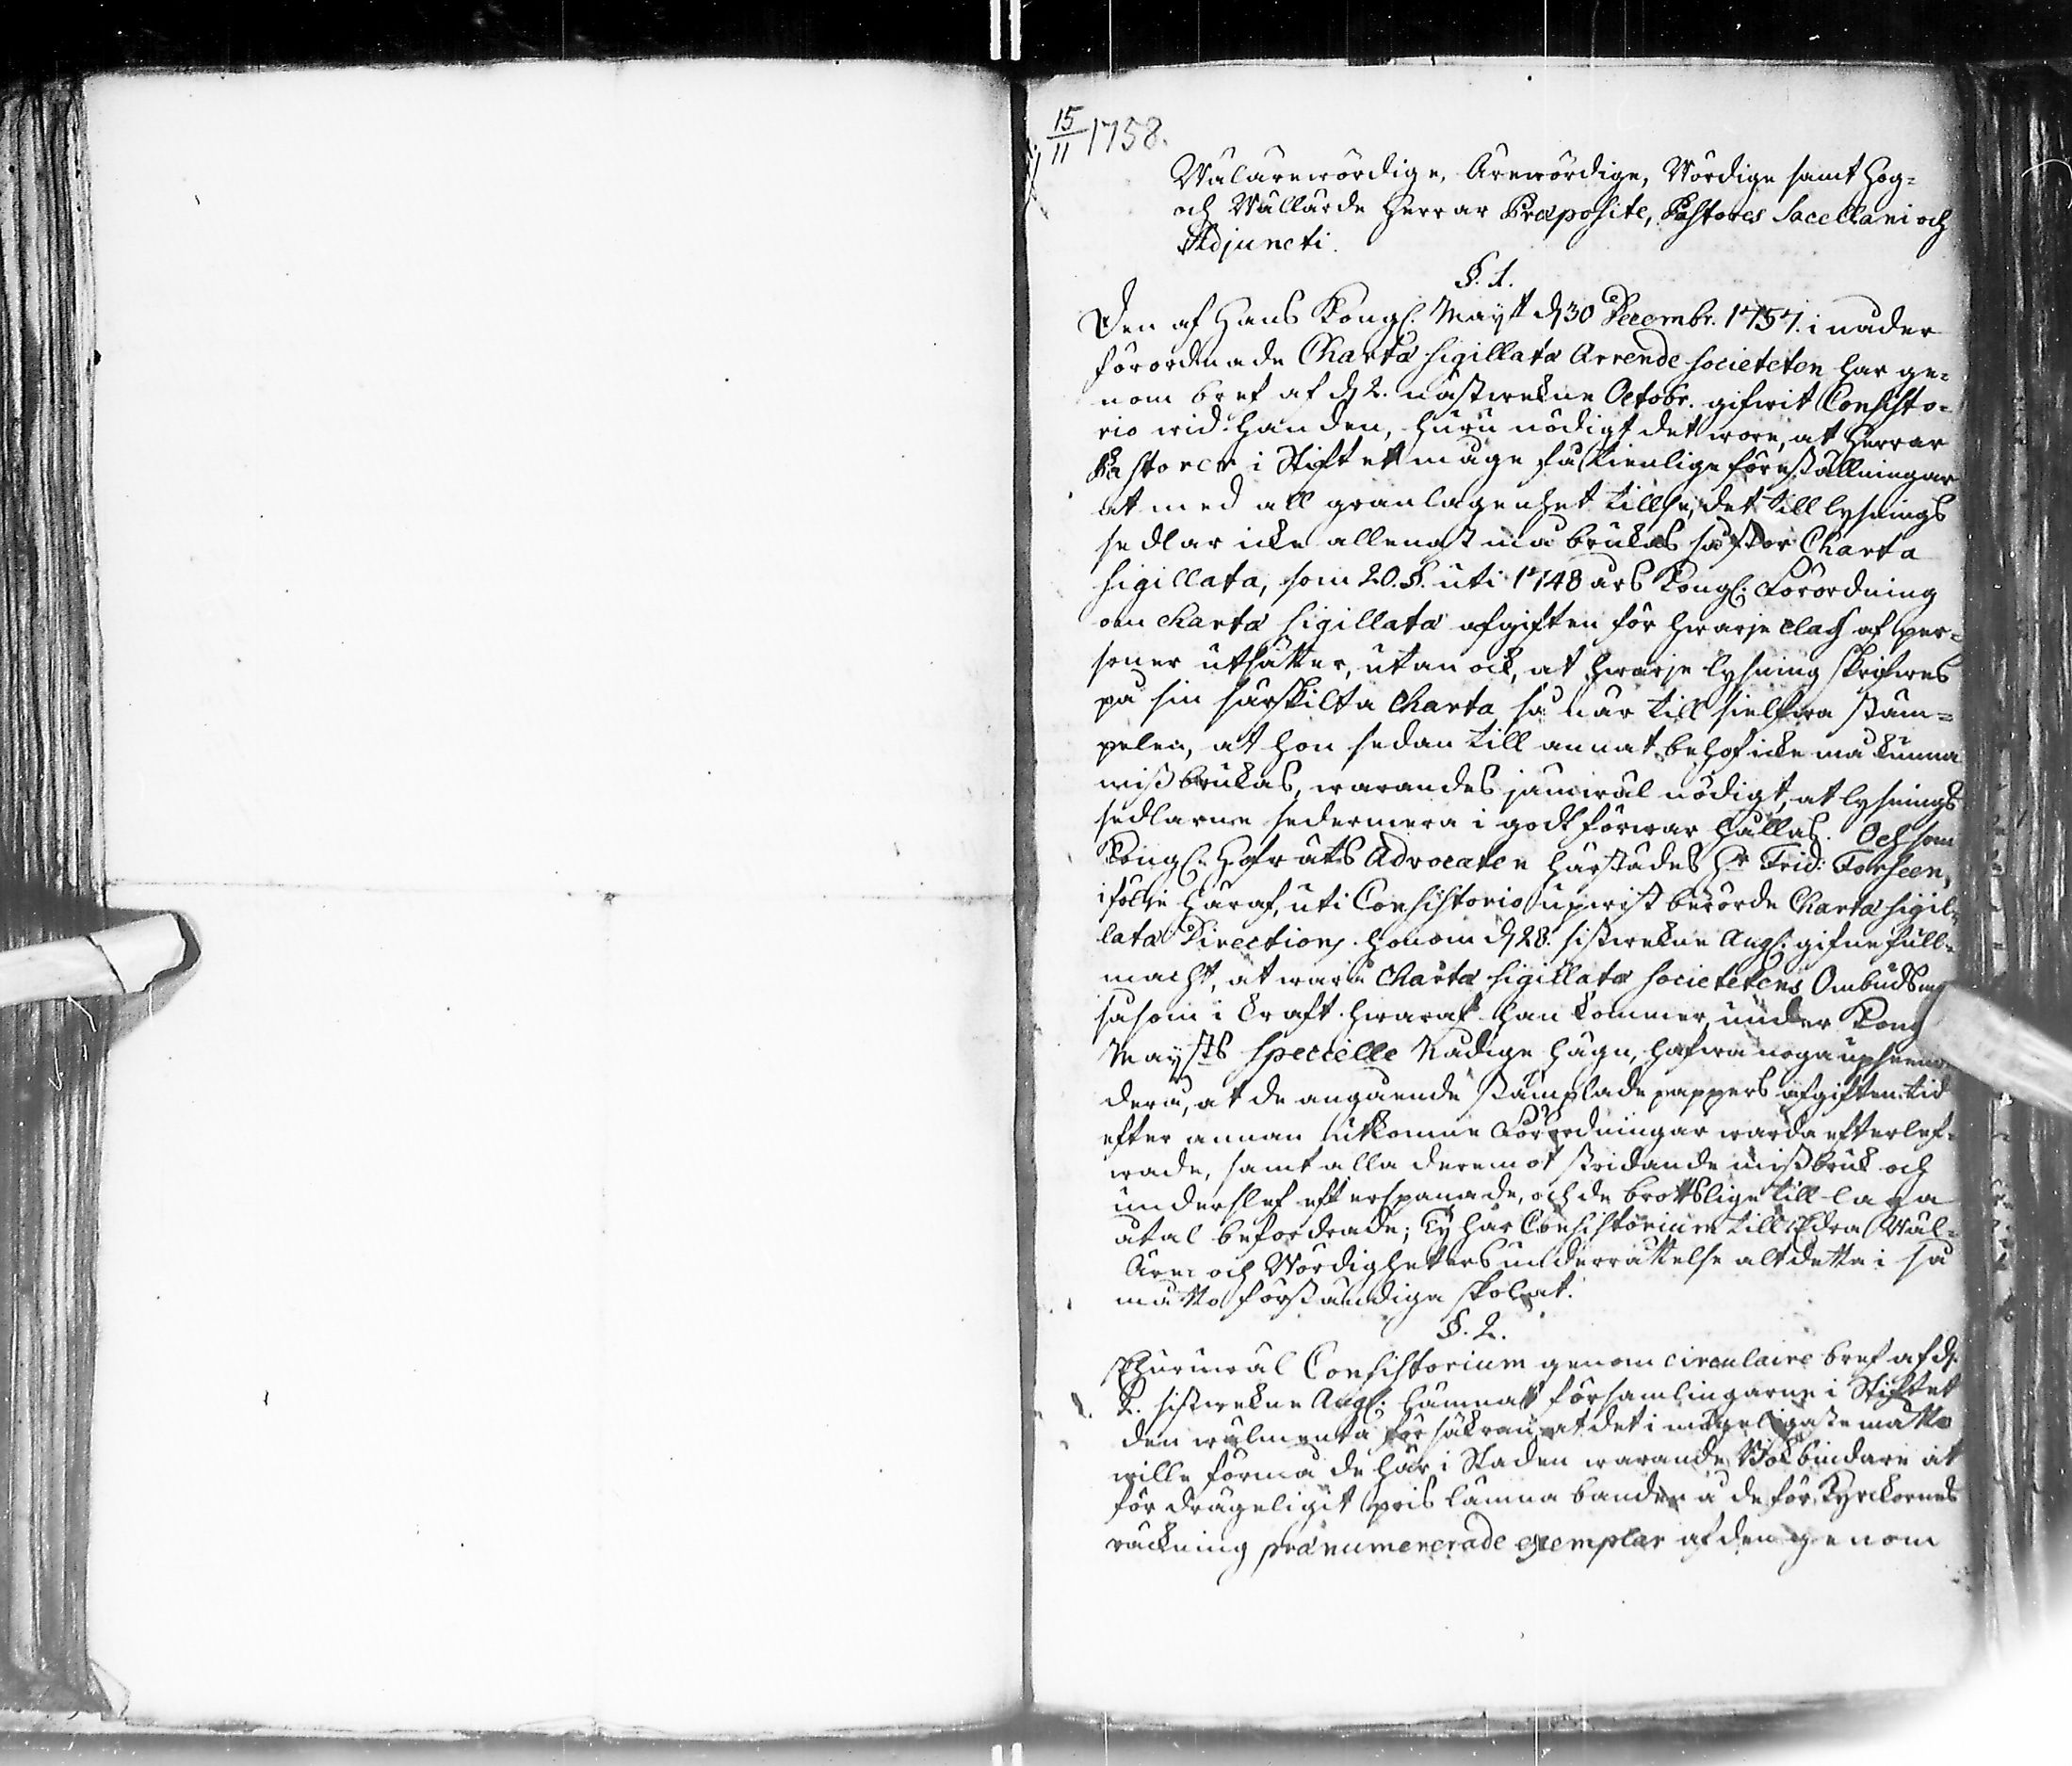 15/11 1758.
Wälärewördige, Ärewördige, Wördige samt Hög-
och Wällärde Herrar Præposite, Pastores Sacellani och
Adjuncti.
§. 1.
Den af Hans Kongl. Mayst d. 30 Decembr. 1757. i nåder
förordnade Chartæ Sigillatæ Arrende societeten har ge-
nom bref af d. 2. nästwekne Octobr. gifwit Consisto-
rio wid handen, huru nödigt det wore, at Herrar
Pastorer i Stiftet måge få tienlige föreställningar
at med all granlagenhet tillse, det till lysnings
sedlar icke allenast må brukas så stor Charta
sigillata, som 20. §. uti 1748 års Kongl. Förordning
om Charta Sigillatæ afgiften för hwarje Class af per-
soner utsätter, utan ock, at hwarje lysning skrifwes
på sin särskilta Charta så när till sielfwa stäm-
pelen, at hon sedan till annat behof icke må kunna
missbrukas, warandes jämwäl nödigt, at lysnings
sedlarne sedermera i godt förwar hållas. Och som
Kongl. Hofräts Advocaten härstädes Hr Frid: Forseen,
i följe häraf, uti Consistorio upwist berörde Charta Sigil-
latæ Directions honom d. 28. sistwekne Aug. gifne full-
macht, at wara Chartæ Sigillatæ Societetens Ombudsm
såsom i kraft hwaraf han kommer under Kong
Maysts speciella Nådige hägn, hafwa noga upseende
derå, at de angående stämplade pappers afgiften tid
efter annan utkomne Förordningar warda efterlef-
wade, samt alla deremot stridande missbruk och
underslef efterspanade, och de brottslige till laga
åtal befordrade; Ty har Consistorium till Edra Wäl-
Äre- och Wördigheters underrättelse alt detta i så
måtto förständiga skolat.
§. 2.
Ehuruwäl Consistorium genom circulaire bref af d.
2. sistwekne Aug. lämnat församlingarne i Stiftet
den wälmenta försäkran, at det i möjeligaste måtto
wille förmå de här i Staden warande Bokbindare at
för drägeligit pris lämna banden å de för Kyrckornes
räckning prænumererade exemplar af den genom